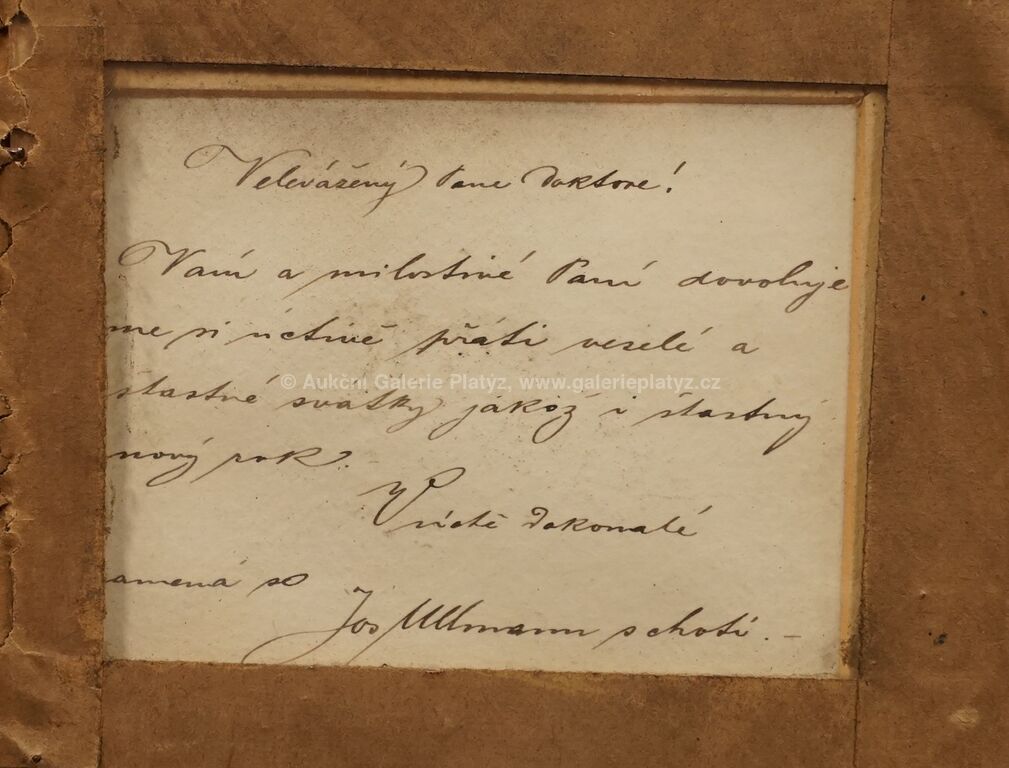 Velevážený Pane Doktore!
Vám a milostivé Paní dovoluje
me si úctivě přáti veselé a
© Aukční Galerie Platýz, www.galerieplatyz.cz
šťastné svátky jakož i šťastný
nový rok.
V úctě dokonalé
amená se
Jos Ullmann s chotí.